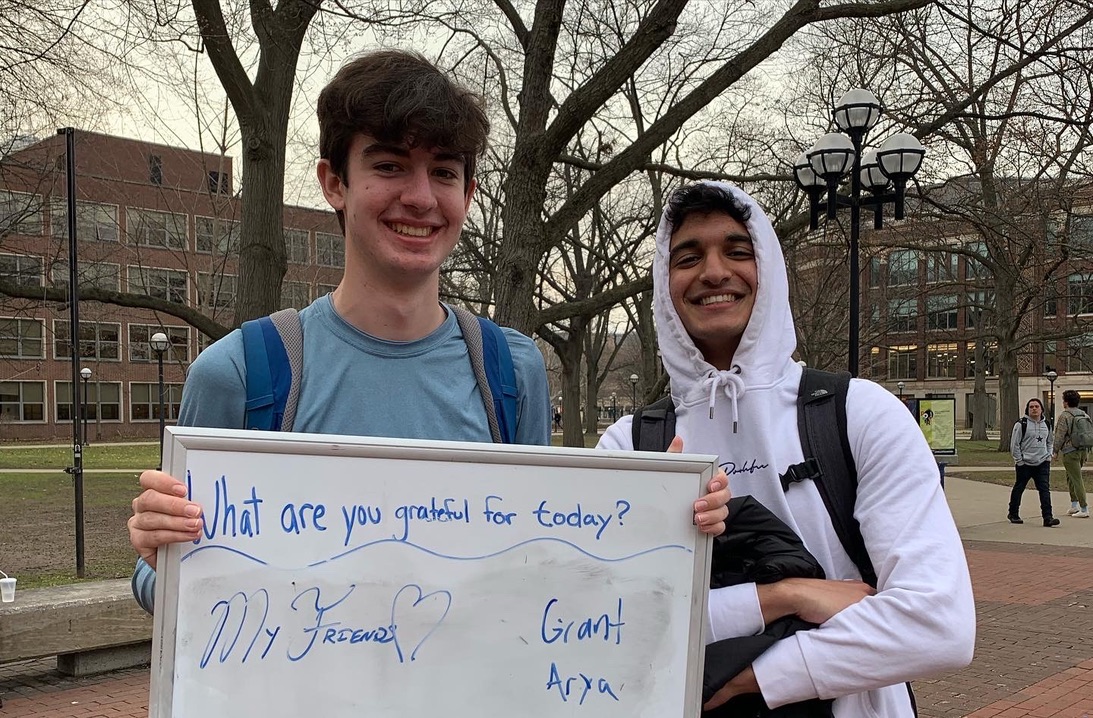 What are you grateful for today?
My Friends
Grant
Arya